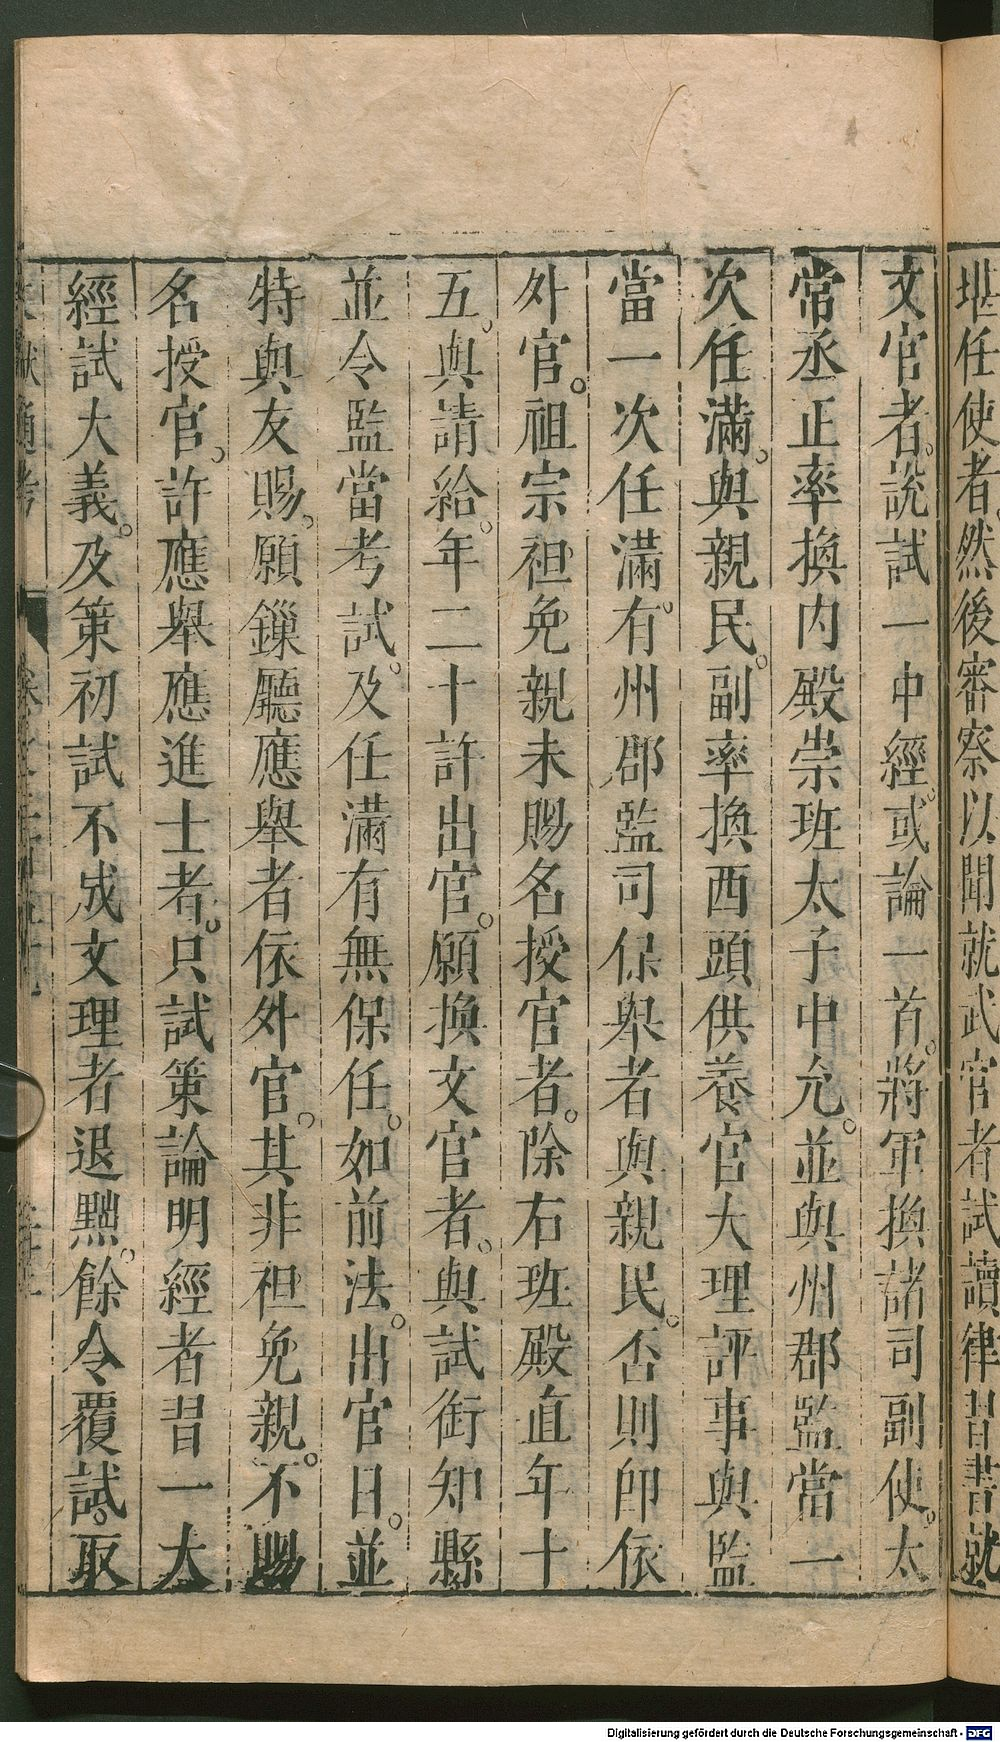 堪任使者。然後審察以聞就武官者試讀律習書就
文官者。說試一中經。或論一首。將軍換諸司副使。太
常丞正率換内殿崇班太子中允。並與州郡監當一
次任滿。與親民。副率換西頭供養官大理評事與監
當一次任滿。有州郡監司保舉者與親民。否則卽依
外官。祖宗袒免親未賜名授官者。除右班殿直年十
五。與請給。年二十許出官。願換文官者。與試銜知縣
並令監當考試。及任滿有無保任。如前法。出官日。並
特與友賜。願鏁廳應舉者依外官。其非袒免親。不賜
名授官。許應舉應進士者。只試策論明經者習一大
經試大義。及策初試不成文理者退黜。餘令覆試。取
Digitalisierung gefördert durch die Deutsche Forschungsgemeinschaft - DFG